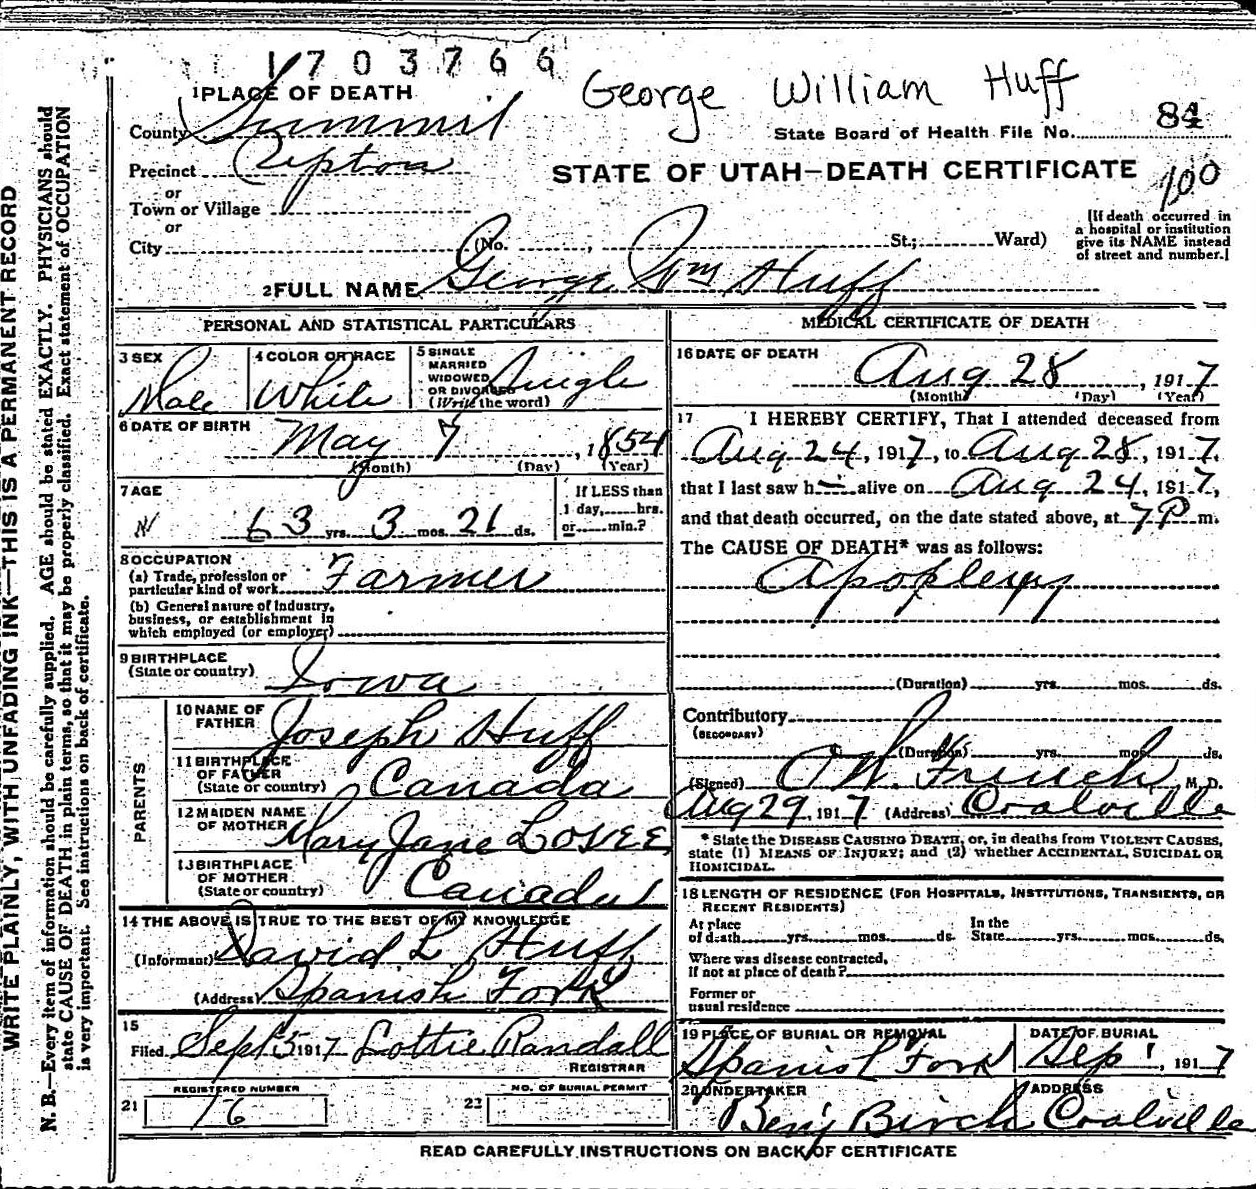 1703766
George William Huff
1 PLACE OF DEATH
County Summit
State Board of Health File No. 84
Precinct Upton
STATE OF UTAH—DEATH CERTIFICATE
100
or
Town or Village
or
City (No. , St.; Ward)
[If death occurred in
a hospital or institution
give its NAME instead
of street and number.]
2 FULL NAME George Wm Huff
PERSONAL AND STATISTICAL PARTICULARS
3 SEX
Male
4 COLOR OR RACE
White
5 SINGLE
MARRIED
WIDOWED
OR DIVORCED
(Write the word)
Single
6 DATE OF BIRTH
May 7, 1854
(Month) (Day) (Year)
7 AGE
63 yrs. 3 mos. 21 ds.
If LESS than
1 day, hrs.
or min.?
8 OCCUPATION
(a) Trade, profession or
particular kind of work Farmer
(b) General nature of Industry,
business, or establishment in
which employed (or employer)
9 BIRTHPLACE
(State or country) Iowa
PARENTS
10 NAME OF
FATHER Joseph Huff
11 BIRTHPLACE
OF FATHER
(State or country) Canada
12 MAIDEN NAME
OF MOTHER Mary Jane Losee
13 BIRTHPLACE
OF MOTHER
(State or country) Canada
14 THE ABOVE IS TRUE TO THE BEST OF MY KNOWLEDGE
(Informant) David L Huff
(Address) Spanish Fork
15
Filed Sept 3 1917 Lottie Randall
REGISTRAR
REGISTERED NUMBER
21 16
NO. OF BURIAL PERMIT
22
MEDICAL CERTIFICATE OF DEATH
16 DATE OF DEATH
Aug 28, 1917
(Month) (Day) (Year)
17 I HEREBY CERTIFY, That I attended deceased from
Aug 24, 1917, to Aug 28, 1917,
that I last saw h alive on Aug 24, 1917,
and that death occurred, on the date stated above, at 7 P m.
The CAUSE OF DEATH* was as follows:
Apoplexy
(Duration) yrs. mos. ds.
Contributory
(SECONDARY)
(Duration) yrs. mos. ds.
(Signed) French, M. D.
Aug 29, 1917 (Address) Coalville
* State the DISEASE CAUSING DEATH, or, in deaths from VIOLENT CAUSES,
state (1) MEANS OF INJURY; and (2) whether ACCIDENTAL, SUICIDAL OR
HOMICIDAL.
18 LENGTH OF RESIDENCE (FOR HOSPITALS, INSTITUTIONS, TRANSIENTS, OR
RECENT RESIDENTS)
At place
of death yrs. mos. ds.
In the
State yrs. mos. ds.
Where was disease contracted,
if not at place of death?
Former or
usual residence
19 PLACE OF BURIAL OR REMOVAL
Spanish Fork
DATE OF BURIAL
Sep 1, 1917
20 UNDERTAKER
Benj Birch
ADDRESS
Coalville
READ CAREFULLY INSTRUCTIONS ON BACK OF CERTIFICATE
WRITE PLAINLY, WITH UNFADING INK—THIS IS A PERMANENT RECORD
N. B.—Every item of information should be carefully supplied. AGE should be stated EXACTLY. PHYSICIANS should
state CAUSE OF DEATH in plain terms, so that it may be properly classified. Exact statement of OCCUPATION
is very important. See instructions on back of certificate.